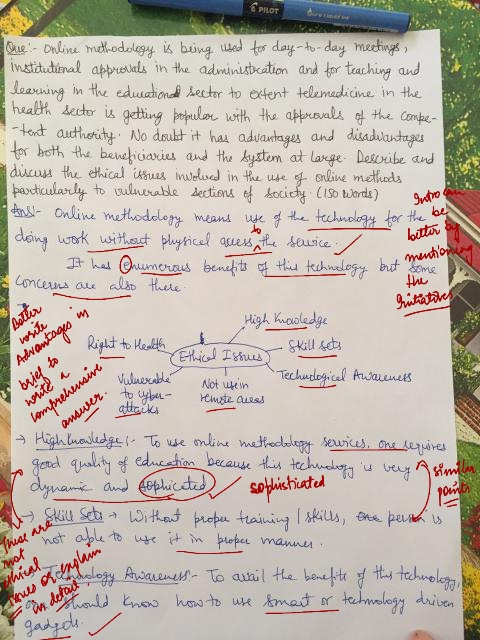 PILOT
Que:- Online methodology is being used for day-to-day meetings,
institutional approvals in the administration and for teaching and
learning in the educational sector to extent telemedicine in the
health sector is getting popular with the approvals of the compe-
-tent authority. No doubt it has advantages and disadvantages
for both the beneficiaries and the system at large. Describe and
discuss the ethical issues involved in the use of online methods
particularly to vulnerable sections of society. (150 Words)
Ans:- Online methodology means use of the technology for the
doing work without physical access to the service.
It has enumerous benefits of this technology but some
concerns are also there.
Intro can
be
better by
mentioning
the
Initiatives
Better
write
Advantages in
brief to
write a
comprehensive
answer.
Ethical Issues
High Knowledge
Skill Sets
Technological Awareness
Not use in
remote areas
Vulnerable
to cyber-
attacks
Right to Health
→ High Knowledge :- To use online methodology services, one requires
good quality of education because this technology is very
dynamic and sophicated
sophisticated
→ Skill Sets → Without proper training / skills, one person is
not able to use it in proper manner.
similar
points
These are
not
ethical
issues or explain
in detail
Technology Awareness:- To avail the benefits of this technology,
should know how to use smart or technology driven
gadgets.